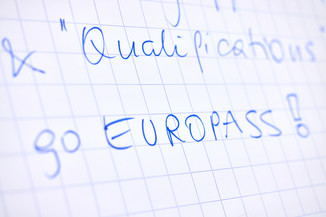 & "Qualifications"
go EUROPASS!